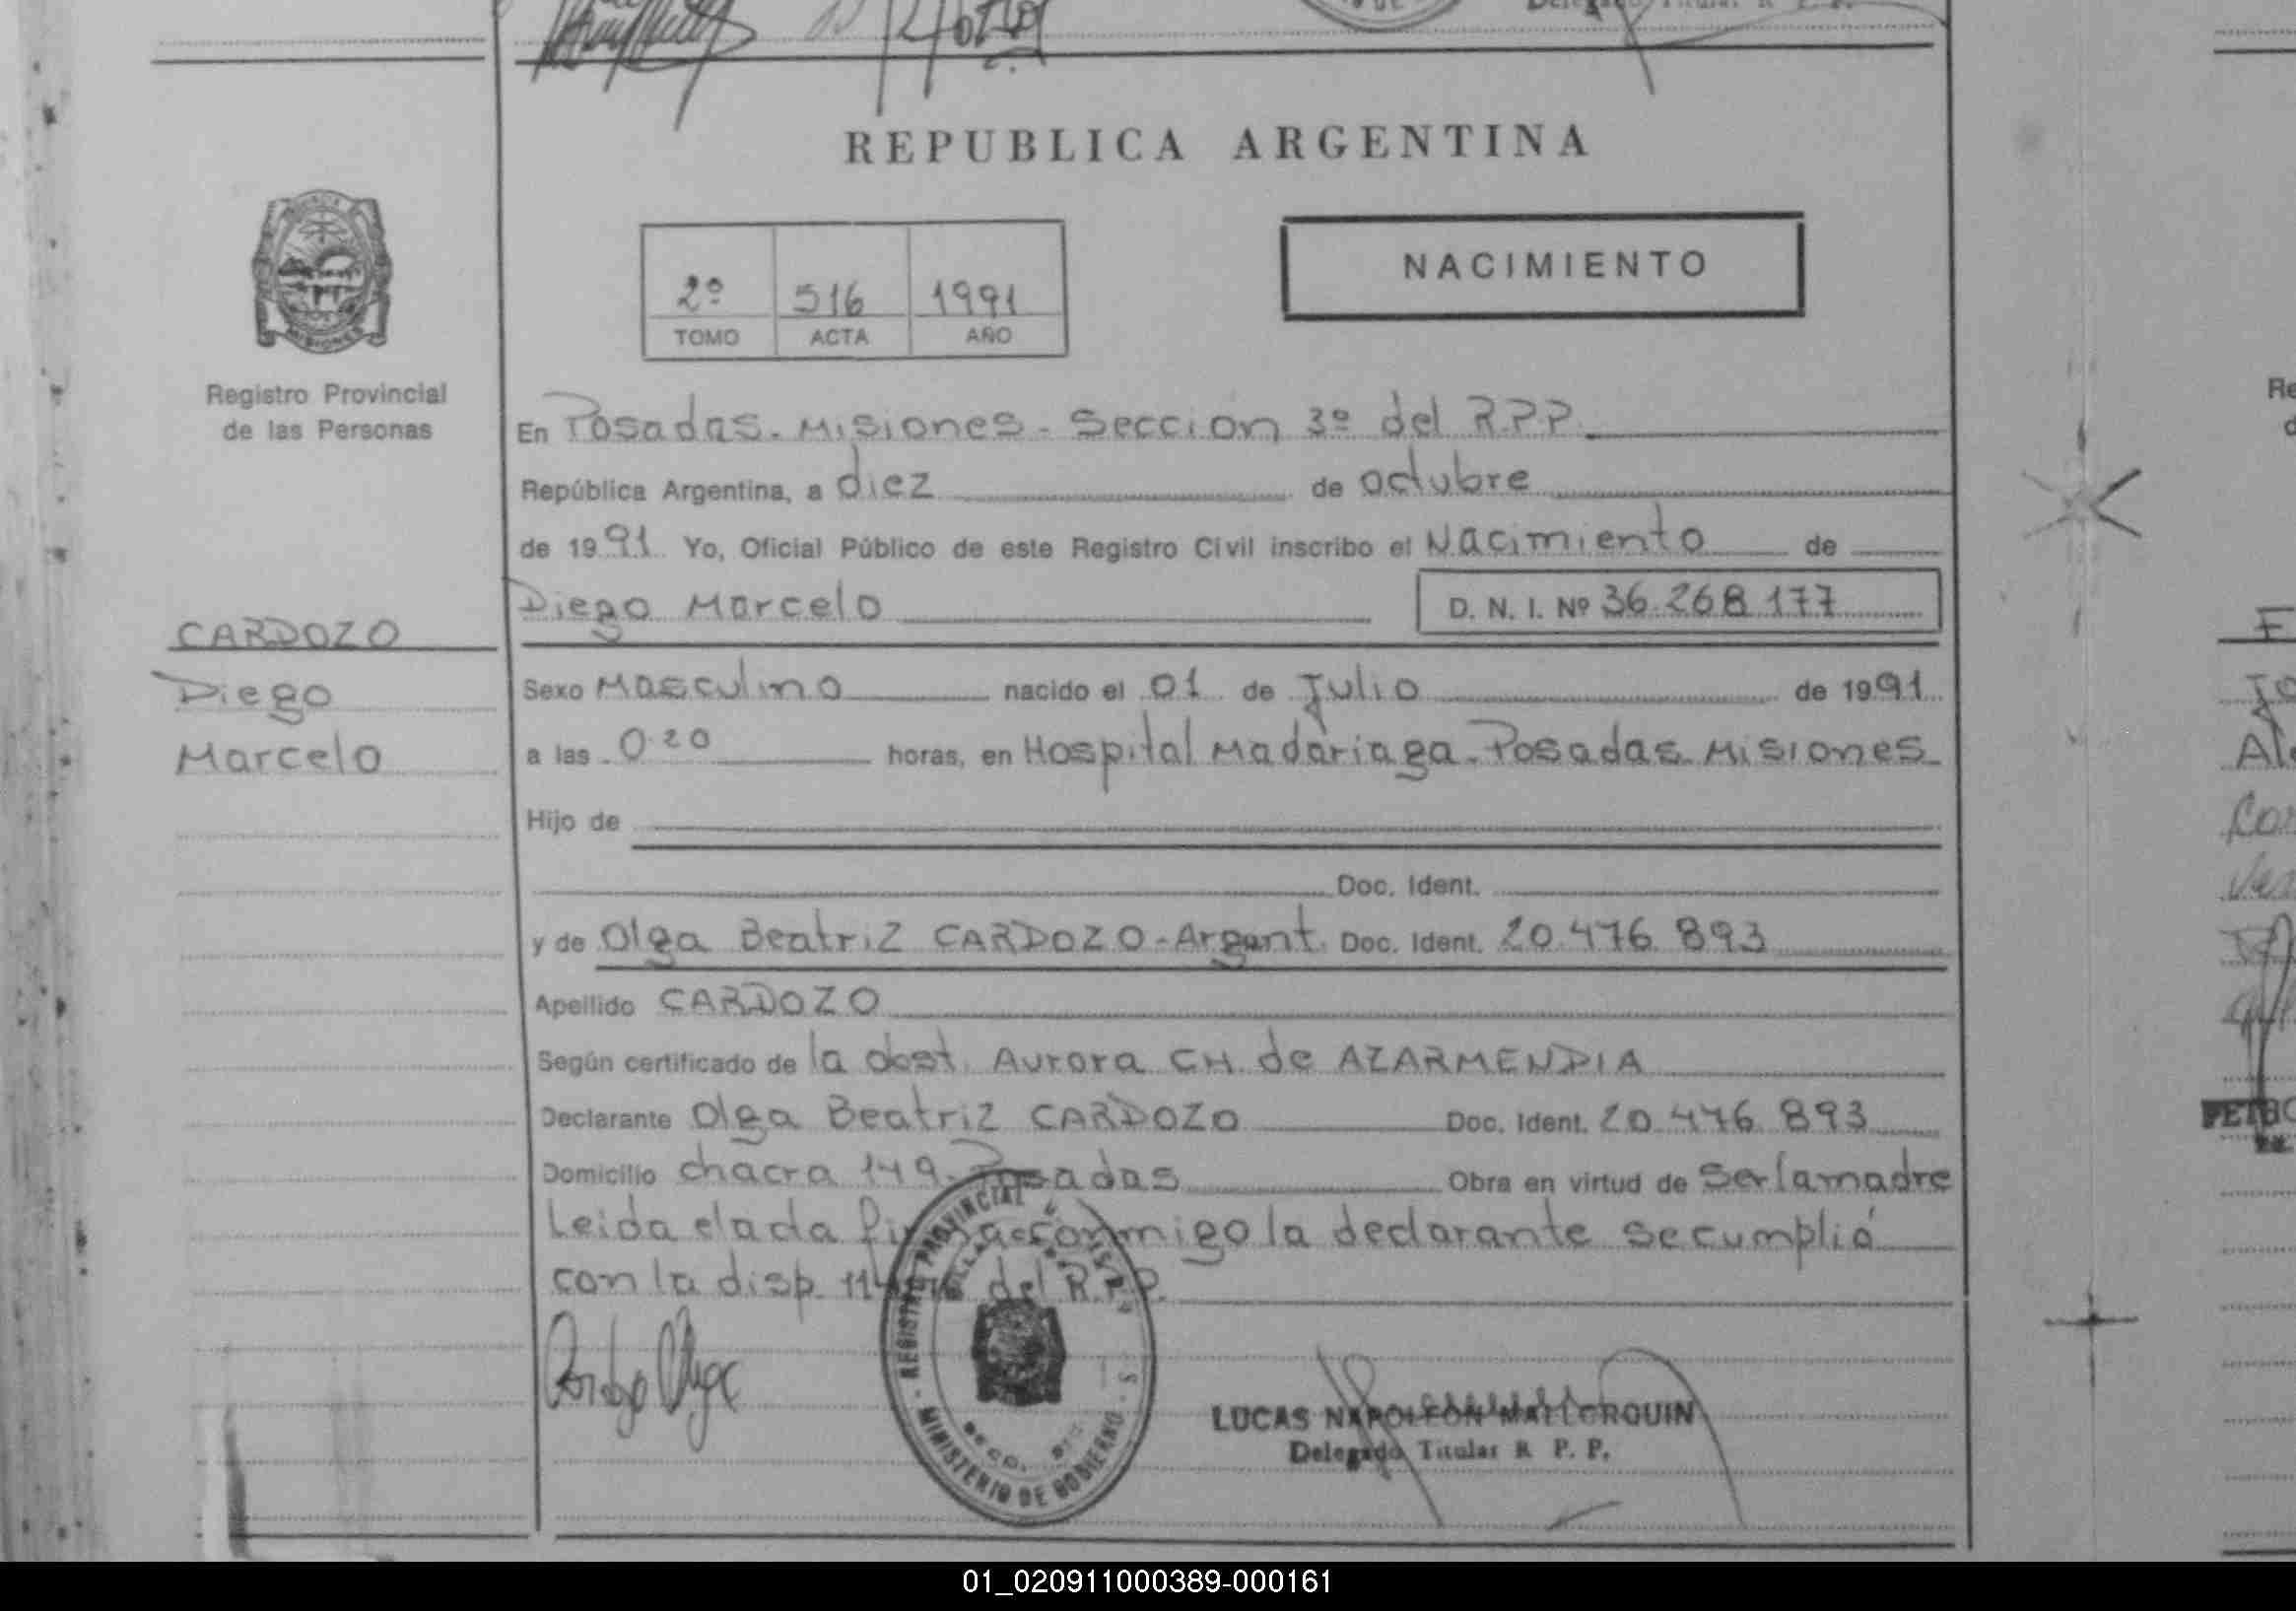 REPUBLICA ARGENTINA
MISIONES
Registro Provincial
de las Personas
2º 516 1991
TOMO ACTA AÑO
NACIMIENTO
En Posadas. Misiones - Sección 3º del R.P.P.
República Argentina, a diez de octubre
de 1991 Yo, Oficial Público de este Registro Civil inscribo el Nacimiento de
Diego Marcelo D. N. I. Nº 36.268.177
CARDOZO
Diego
Marcelo
Sexo Masculino nacido el 01 de Julio de 1991
a las 0.20 horas, en Hospital Madariaga - Posadas. Misiones
Hijo de
Doc. Ident.
y de Olga Beatriz CARDOZO - Argent. Doc. Ident. 20.476.893
Apellido CARDOZO
Según certificado de la obst. Aurora CH. de AZARMENDIA
Declarante Olga Beatriz CARDOZO Doc. Ident. 20.476.893
Domicilio chacra 149. Posadas Obra en virtud de Ser la madre
Leida el acta firma conmigo la declarante se cumplió
con la disp. del R.P.P.
Cardozo Olga
REGISTRO PROVINCIAL
MINISTERIO DE GOBIERNO
LUCAS NAPOLEON MALLORQUIN
Delegado Titular R. P. P.
01_020911000389-000161